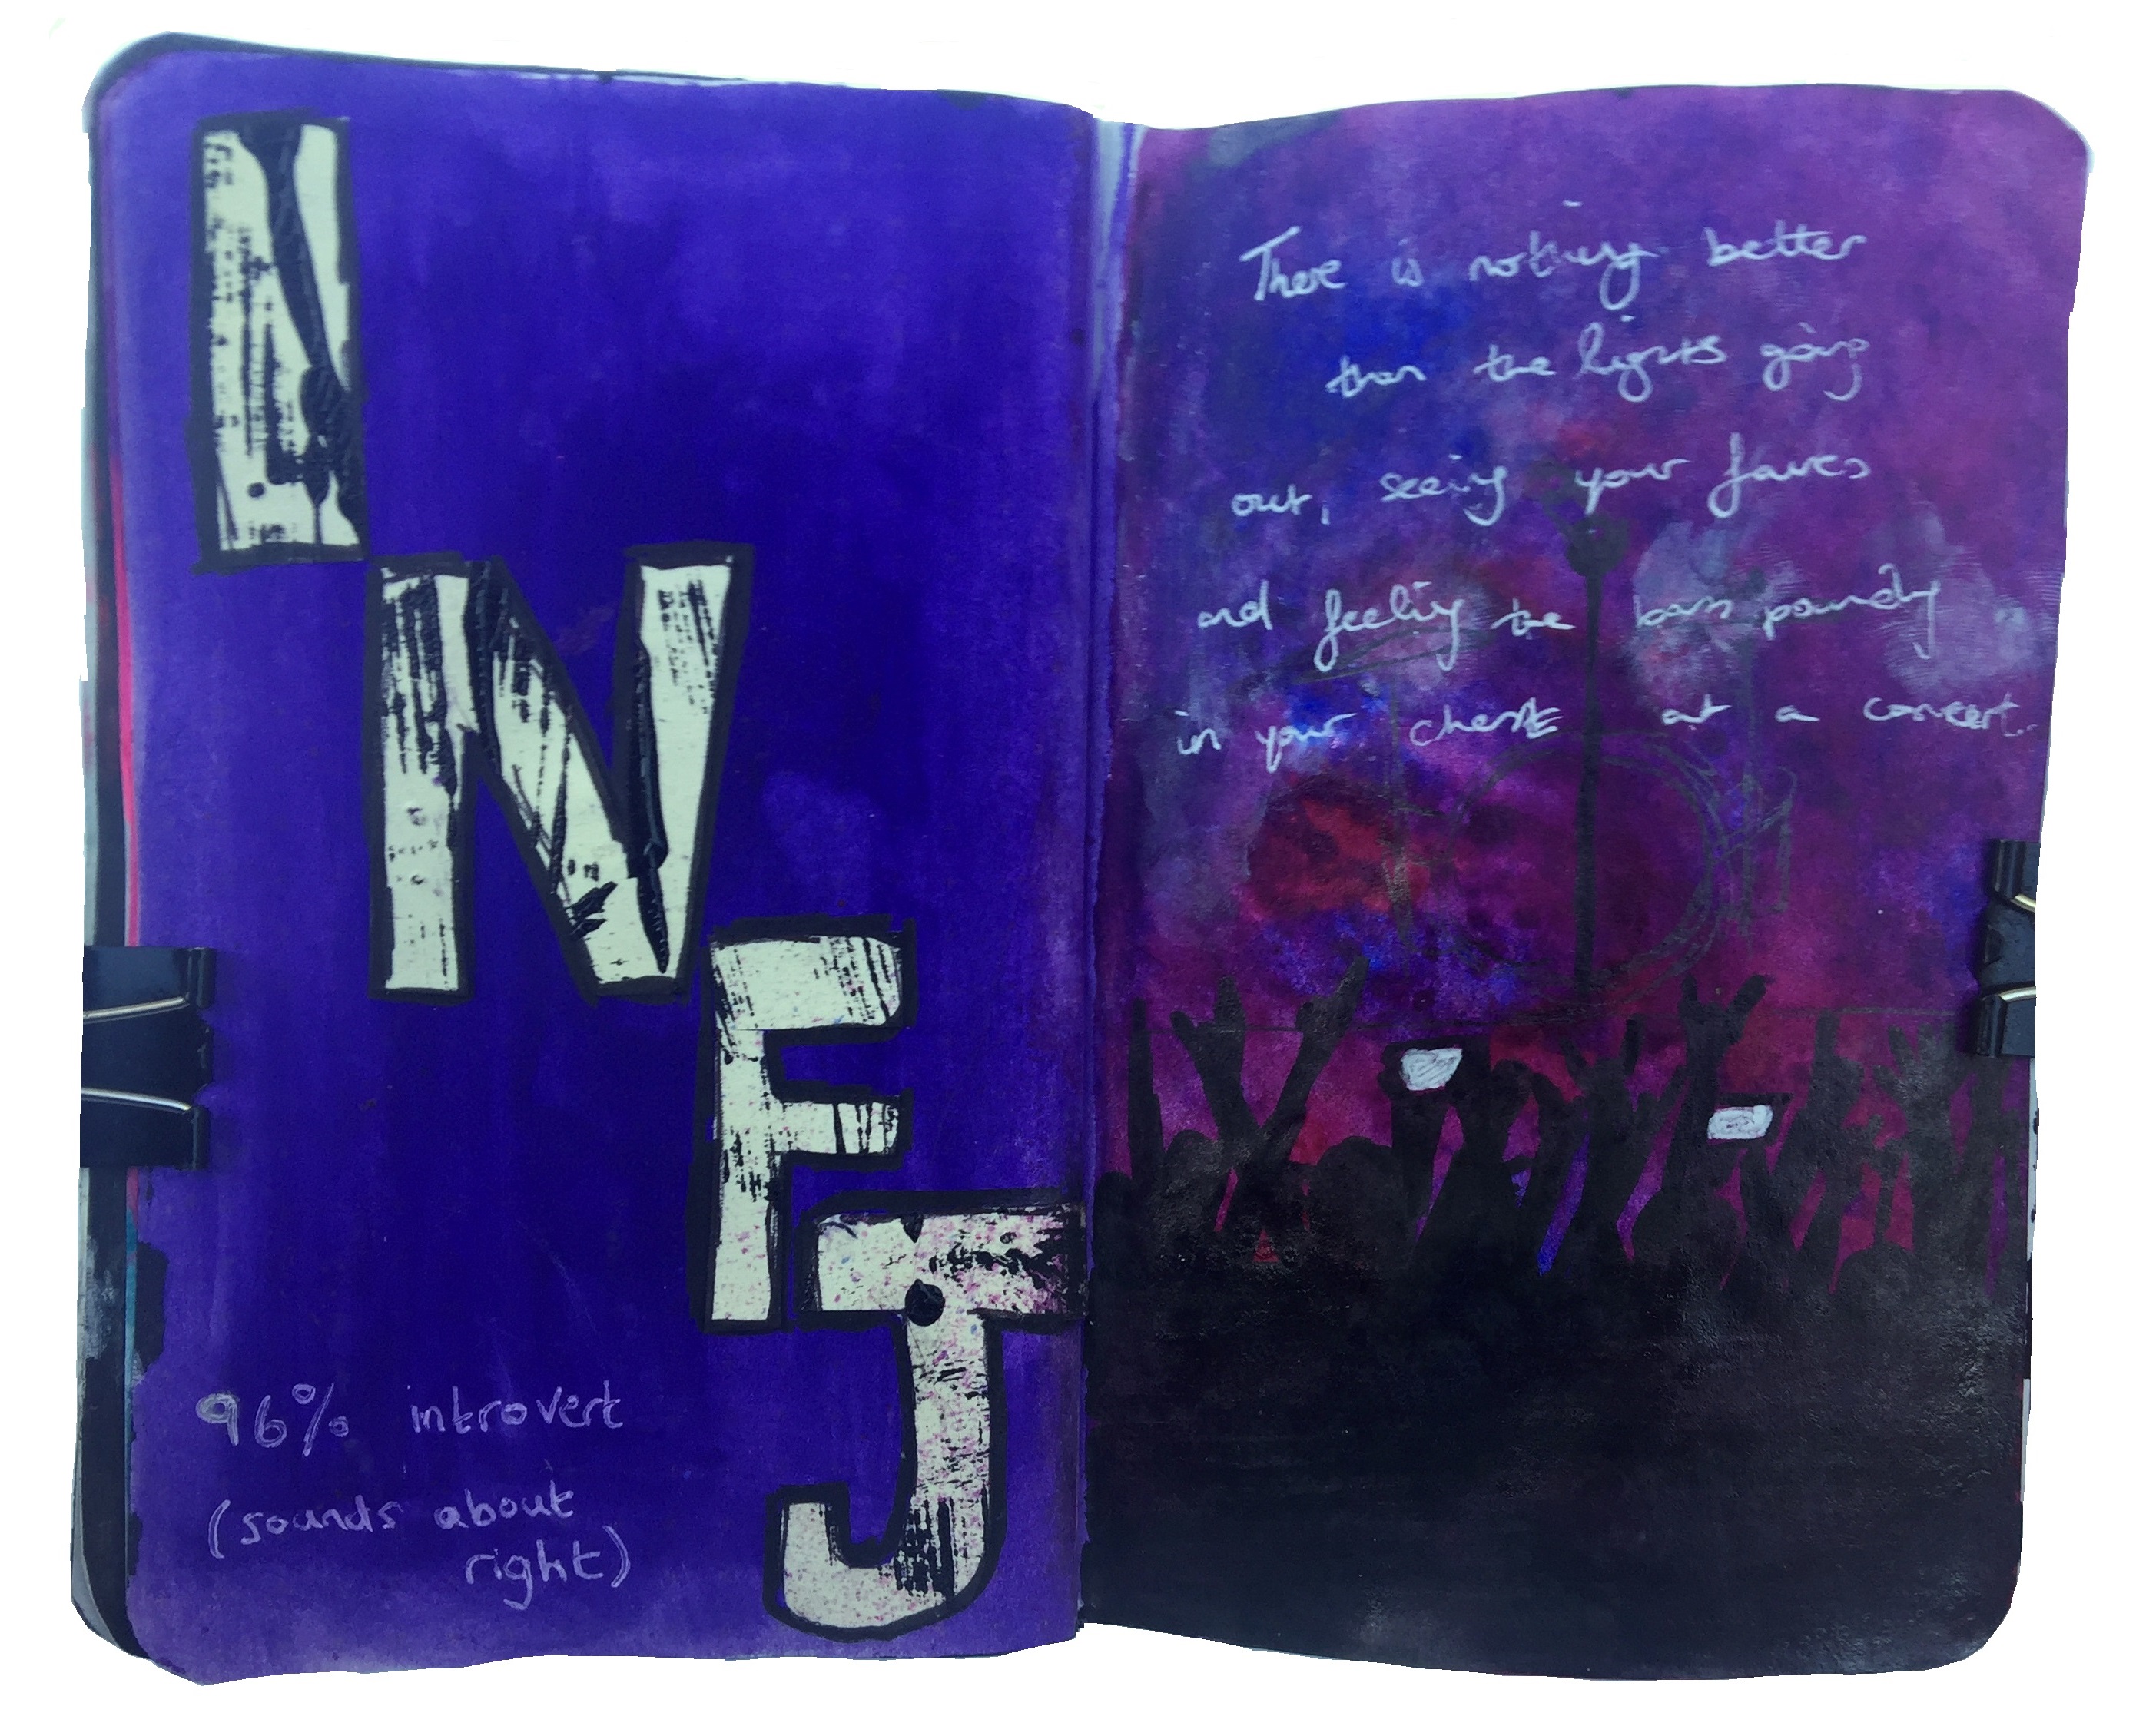 I
N
F
J
96% introvert
(sounds about
right)
There is nothing better
than the lights going
out, seeing your faves
and feeling the bass pounding
in your chest at a concert.